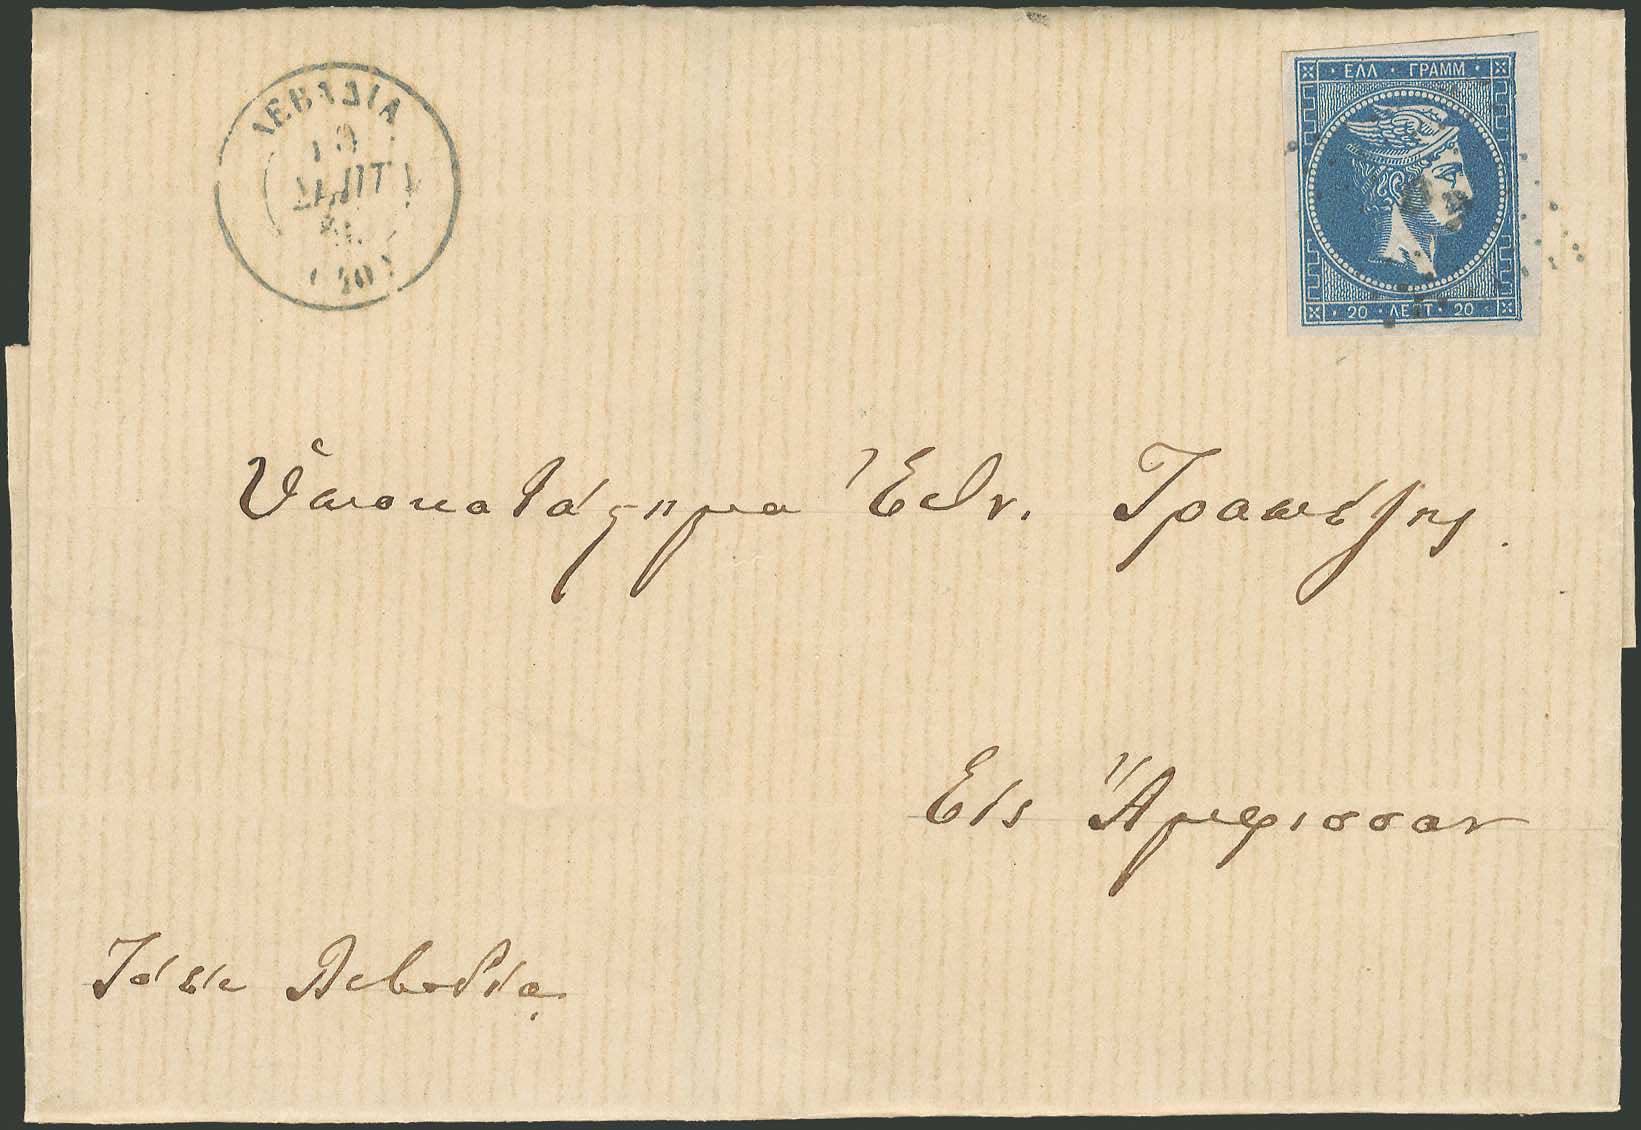 ΛΕΒΑΔΙΑ
ΣΕΠΤ
ΕΛΛ · ΓΡΑΜΜ ·
20 · ΛΕΠΤ · 20
Ὑποκατάστημα Ἐθν. Τραπέζης.
Εἰς Ἄμφισσαν
Λεβαδίᾳ